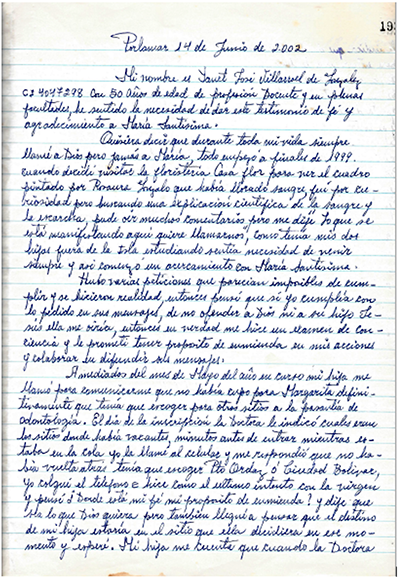 193
Porlamar 14 de Junio de 2002
Mi nombre es Janet José Villarroel de González
CI 4047298 Con 50 Años de edad de profesión Docente y en plenas
facultades, he sentido la necesidad de dar este testimonio de fé y
agradecimiento a María Santísima.
Quisiera decir que durante toda mi vida siempre
llamé a Dios pero jamás a María, todo empezó a finales de 1999.
cuando decidí visitar la floristería Casa flor para ver el cuadro
pintado por Rosaura Gonzalo que había llorado sangre, fuí por cu-
riosidad pero buscando una explicación científica de la sangre y
la escarcha, pude oir muchos comentarios pero me dije lo que se
está manifestando aquí quiere llamarnos, como tenía mis dos
hijas fuera de la Isla estudiando sentía necesidad de venir
siempre y así comenzó un acercamiento con María Santísima.
Hubo varias peticiones que parecían imposibles de cum-
plir y se hicieron realidad, entonces pensé que si yo cumplía con
lo pedido en sus mensajes, de no ofender a Dios ni a su hijo Je-
sús ella me oiría, entonces en verdad me hice un examen de con-
ciencia y le prometí tener propósito de enmienda en mis acciones
y colaborar en difundir sus mensajes.
A mediados del mes de Mayo del año en curso mi hija me
llamó para comunicarme que no había cupo para Margarita defini-
tivamente que tenía que escoger para otros sitios a la pasantía de
odontología. El día de la inscripción la Doctora le indicó cuales eran
los sitios donde había vacantes, minutos antes de entrar mientras es-
taba en la cola yo la llamé al celular y me respondió que no ha-
bía vuelta atrás tenía que escoger Pto Ordaz ó Ciudad Bolívar,
yo colgué el teléfono e hice como el último intento con la virgen
y pensé ¿Donde está mi fé mi propósito de enmienda? y dije que
sea lo que Dios quiera pero también llegué a pensar que el destino
de mi hija estaría en el sitio que ella decidiera en ese mo-
mento y esperé. Mi hija me cuenta que cuando la Doctora